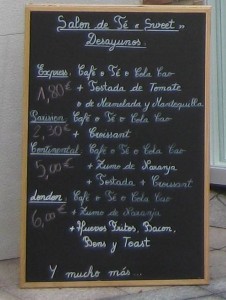 Salon de Té « Sweet »
Desayunos.
Express: Café o Té o Cola Cao
1,80€ + Tostada de Tomate
o de Mermelada y Mantequilla.
Parisien: Café o Té o Cola Cao
2,30€ + Croissant
Continental: Café o Té o Cola Cao
5,00€ + Zumo de Naranja
+ Tostada + Croissant
London: Café o Té o Cola Cao
6,00€ + Zumo de Naranja
+ Huevos Fritos, Bacon,
Bens y Toast
Y mucho más...